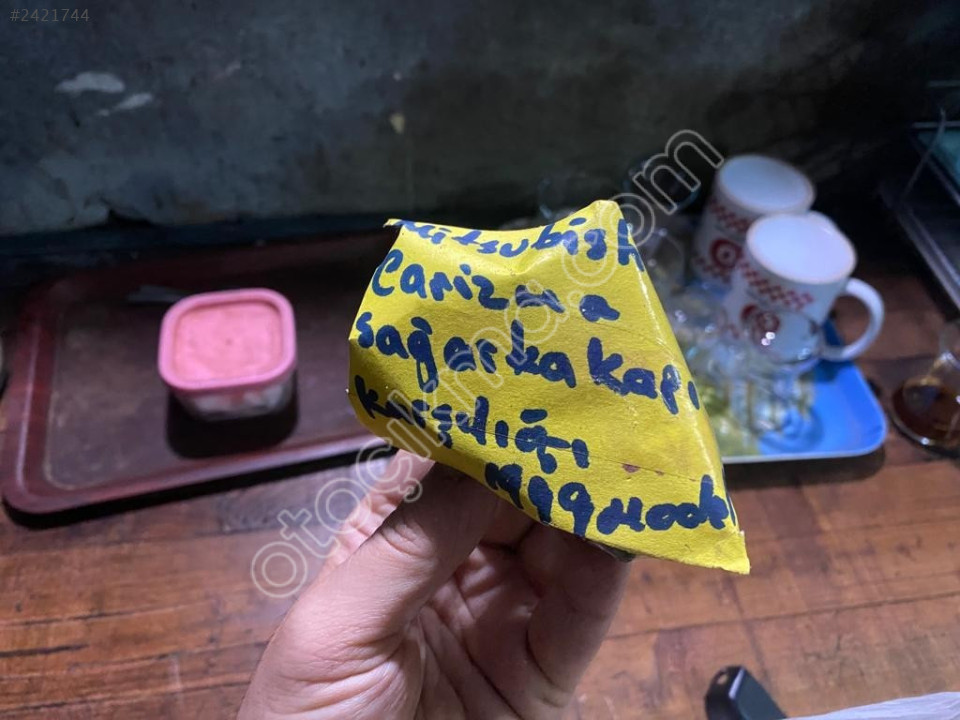 #2421744
mitsubish
Carizma
sağ arka kapı
Karşılığı
1999 model
otocikma.com